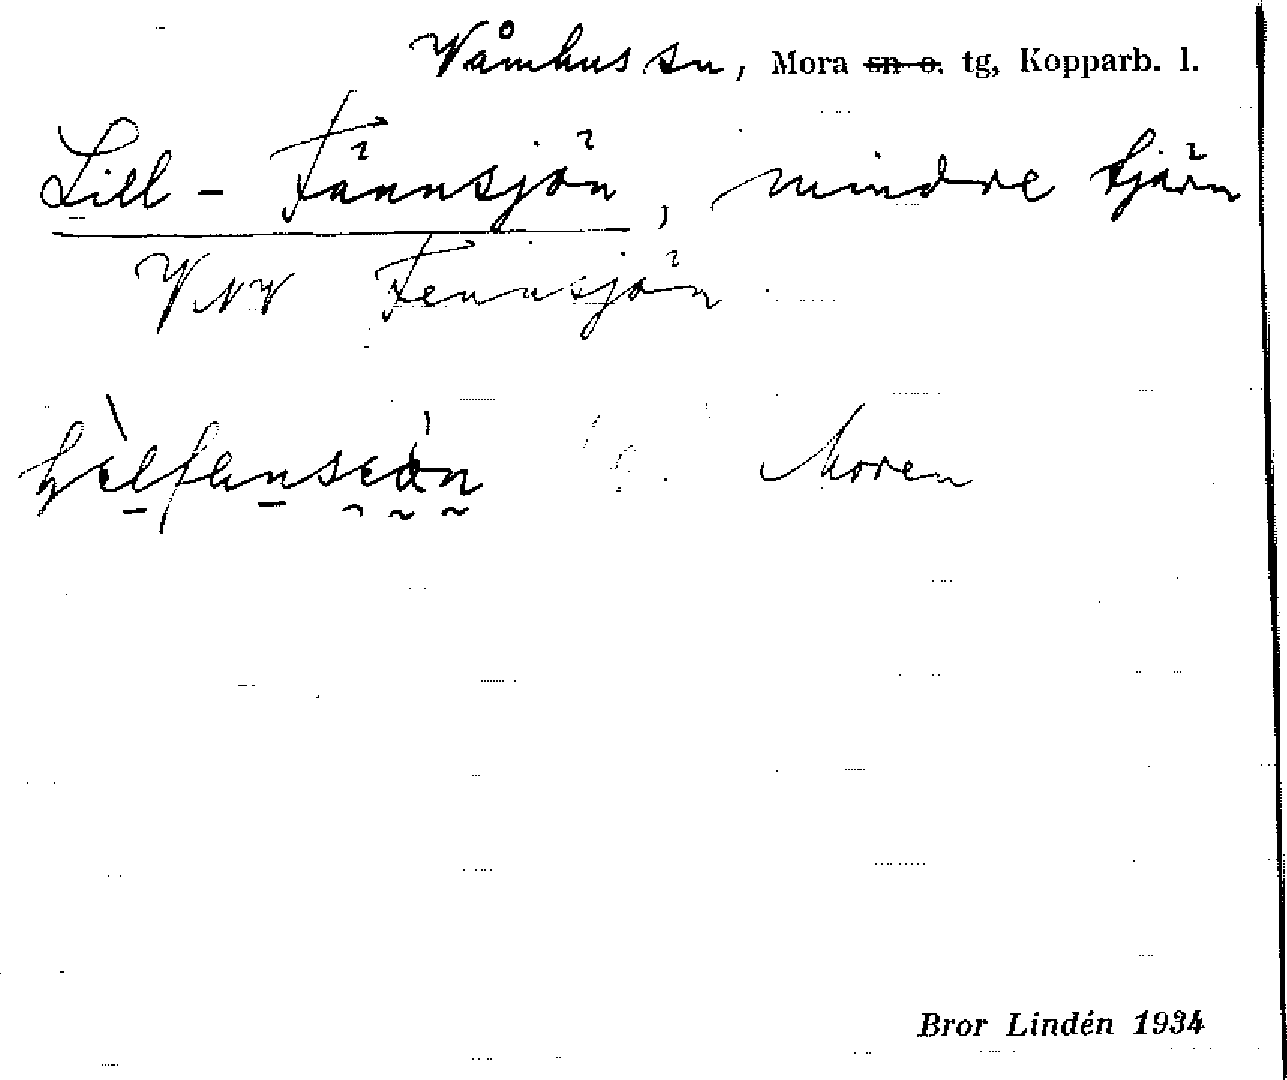 Våmhus sn, Mora sn o. tg, Kopparb. l.
Lill-Fännsjön, mindre tjärn
VNV Fennsjön
Moren
Bror Lindén 1934